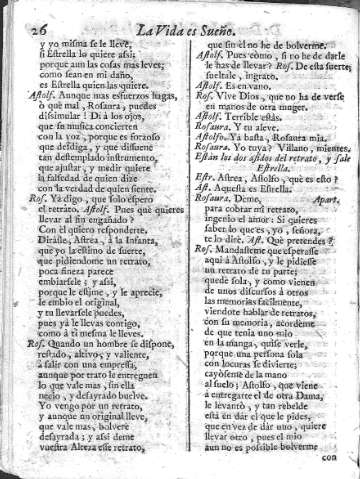 26
La Vida es Sueño.
y yo misma se le lleve,
si Estrella lo quiere assi;
porque aun las cosas mas leves;
como sean en mi daño,
es Estrella quien las quiere.
Astolf. Aunque mas esfuerços hagas,
ò què mal, Rosaura, puedes
dissimular! Di à los ojos,
que su musica concierten
con la voz, porque es forzoso
que desdiga, y que dissuene
tan destemplado instrumento,
que ajustar, y medir quiere
la falsedad de quien dize
con la verdad de quien siente.
Ros. Ya digo, que solo espero
el retrato. Astolf. Pues que quieres
llevar al fin engañado?
Con èl quiero responderte.
Diràsle, Astrea, à la Infanta,
que yo la estimo de suerte,
que pidiendome un retrato,
poca fineza parece
embiarsele; y assi,
porque le estime, y le aprecie,
le embio el original,
y tu llevarsele puedes,
pues yà le llevas contigo,
como à ti mesma le lleves.
Ros. Quando un hombre se dispone,
restado, altivo, y valiente,
à salir con una empressa,
aunque por trato le entreguen
lo que vale mas, sin ella
necio, y desayrado buelve.
Yo vengo por un retrato,
y aunque un original lleve,
que vale mas, bolverè
desayrada; y assi deme
vuestra Alteza esse retrato,
que sin èl no he de bolverme.
Astolf. Pues como, si no he de darle
le has de llevar? Ros. De esta suerte;
sueltale, ingrato.
Astolf. Es en vano.
Ros. Vive Dios, que no ha de verse
en manos de otra muger.
Astolf. Terrible estàs.
Rosaura. Y tu aleve.
Astolfo. Ya basta, Rosaura mia.
Rosaura. Yo tuya? Villano, mientes.
Estàn los dos asidos del retrato, y sale
Estrella.
Estr. Astrea, Astolfo, què es esto?
Ast. Aquesta es Estrella.
Rosaura. Deme, Apart.
para cobrar mi retrato
ingenio el amor: Si quieres
saber lo que es, yo, señora,
te lo dirè. Ast. Què pretendes?
Ros. Mandasteme que esperasse
aqui à Astolfo, y le pidiesse
un retrato de tu parte;
quedè sola, y como vienen
de unos discursos à otros
las memorias facilmente,
viendote hablar de retratos,
con su memoria, acordème
de que tenia uno mio
en la manga, quise verle,
porque una persona sola
con locuras se divierte;
cayòseme de la mano
al suelo; Astolfo, que viene
à entregarte el de otra Dama,
le levantò, y tan rebelde
està en dàr el que le pides,
que en vez de dàr uno, quiere
llevar otro, pues el mio
aun no es possible bolverme
con